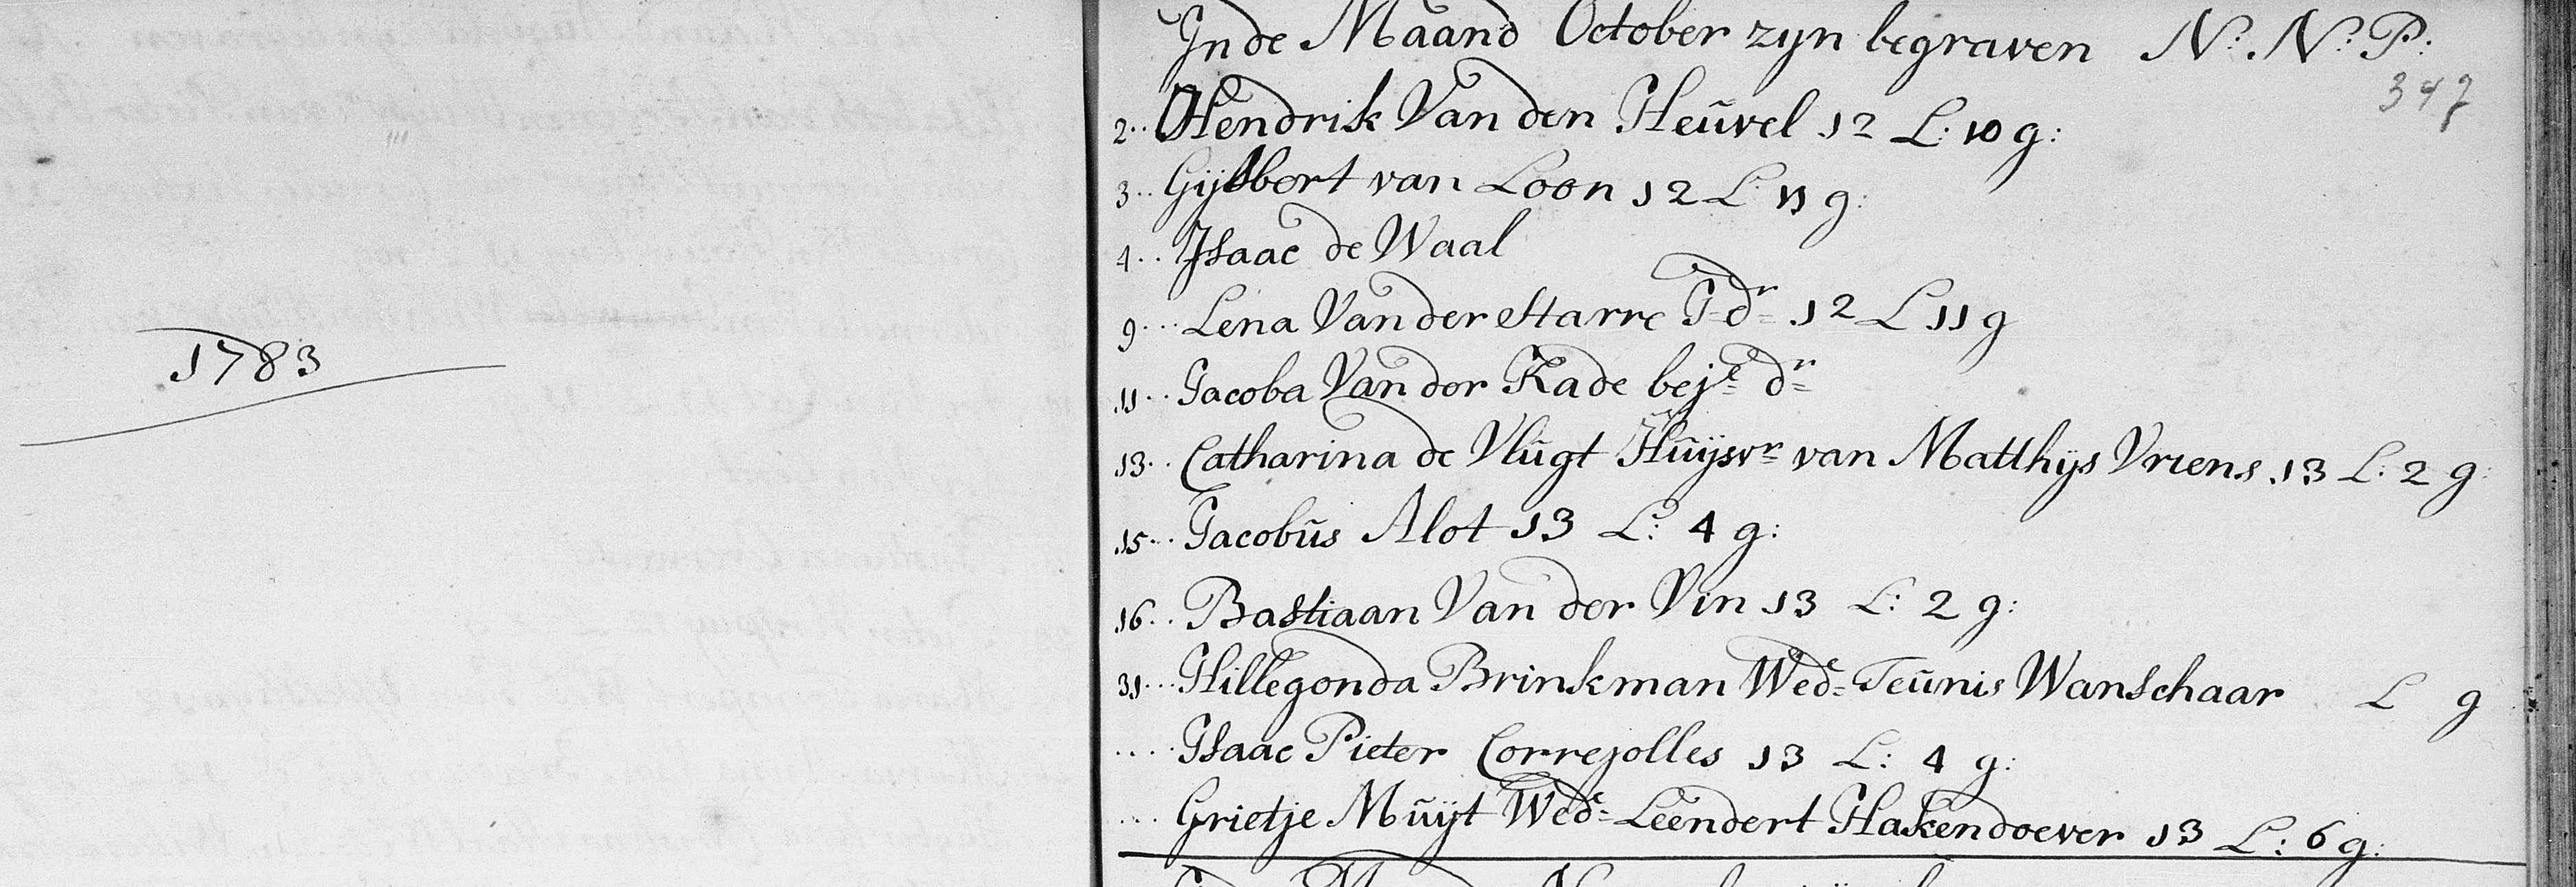 Jn de Maand October zyn begraven N:. N:. P:
347
2.. Hendrik Van den Heuvel 12 L: 10 g:
3.. Gijsbert van Loon 12 L: 11 g:
4.. Jsaac de Waal
9... Lena Van der Starre J=dr= 12 L 11 g
1783
11.. Jacoba Van der Kade bejde dr=
13.. Catharina de Vlugt Huijsvr= van Matthijs Vriens 13 L: 2 g:
15... Jacobus Alot 13 L: 4 g:
16.. Bastiaan Van der Vin 13 L: 2 g:
31... Hillegonda Brinkman Wede= Teunis Wanschaar L g
.... Jsaac Pieter Correjolles 13 L: 4 g:
.... Grietje Muijt Wede= Leendert Hakendoever 13 L: 6 g: